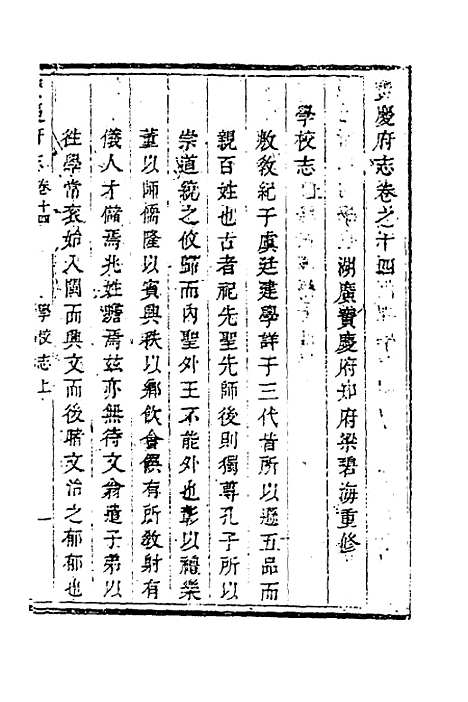 寶慶府志卷之十四
湖廣寶慶府知府梁碧海重修
學校志上
敷教紀于虞廷建學詳于三代皆所以遜五品而
親百姓也古者祀先聖先師後則獨尊孔子所以
崇道統之攸歸而內聖外王不能外也彰以禮樂
董以師儒隆以賓興秩以鄉飲會饌有所教射有
儀人才儲焉兆姓瞻焉茲亦無待文翁遣子弟以
徃學常袞始入閩而興文而後睹文治之郁郁也
府志卷十四 學校志上 一